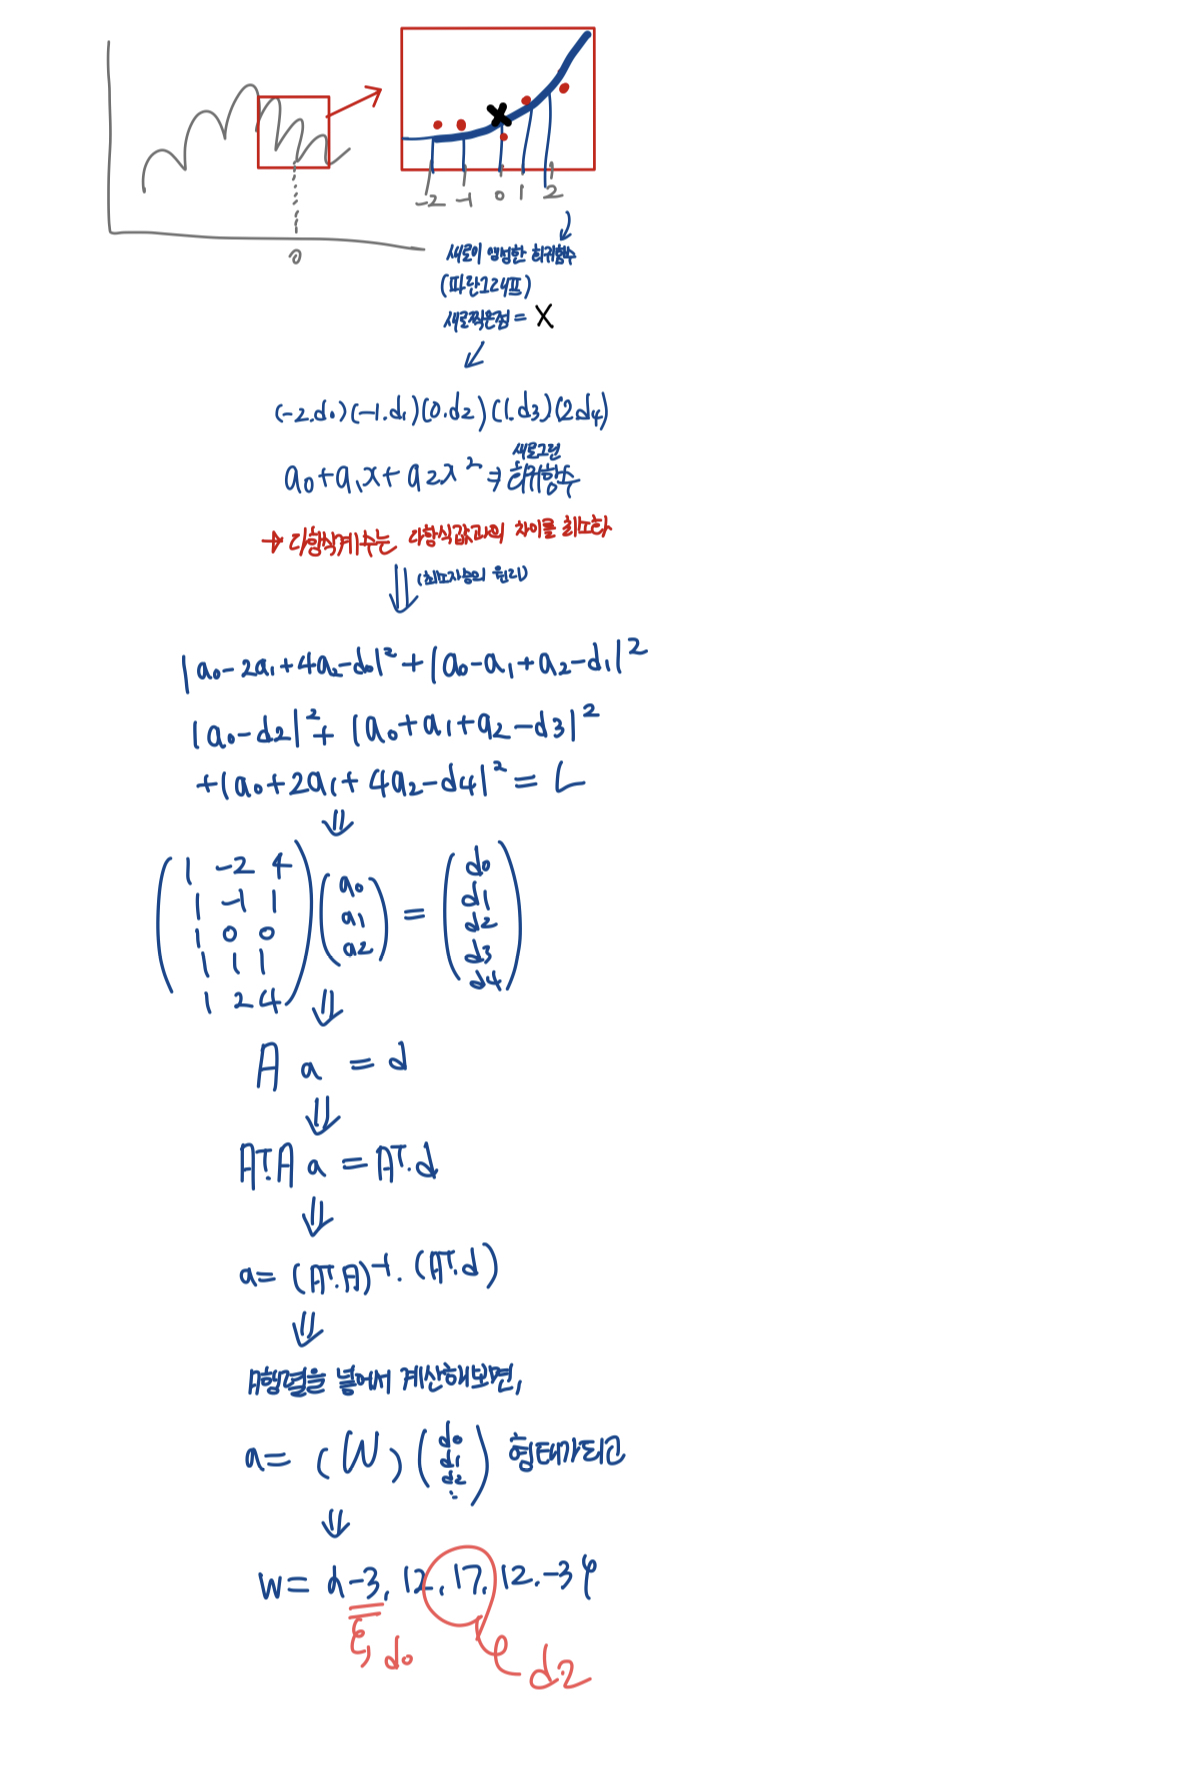 -2 -1 0 1 2
0
새로이 생성한 회귀함수
(파란그래프)
새로찍은점 = X
(-2.d0)(-1.d1)(0.d2)(1.d3)(2.d4)
새로그린
a0+a1x+a2x² ⇒ 회귀함수
→ 다항식계수는 다항식값과의 차이를 최소화
(최소자승의 원리)
|a0-2a1+4a2-d0|²+|a0-a1+a2-d1|²
|a0-d2|²+|a0+a1+a2-d3|²
+|a0+2a1+4a2-d4|²= L
1 -2 4
1 -1 1
1 0 0
1 1 1
1 2 4
a0
a1
a2
=
d0
d1
d2
d3
d4
A a = d
AT.A a = AT.d
a= (AT.A)⁻¹.(AT.d)
A행렬을 넣어서 계산해보면,
a= (W)(d0 d1 d2 ⋮) 형태가되고
W= {-3, 12, 17, 12, -3}
d0
d2